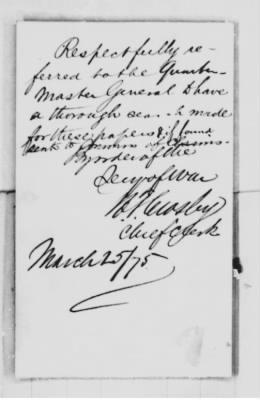 Respectfully re-
ferred to the Quarter-
Master General to have
a thorough search made
for these papers & if found
sent to Commrs of Claims.
By order of the
Secy of War
H. T. Crosby
Chief Clerk
March 25/75